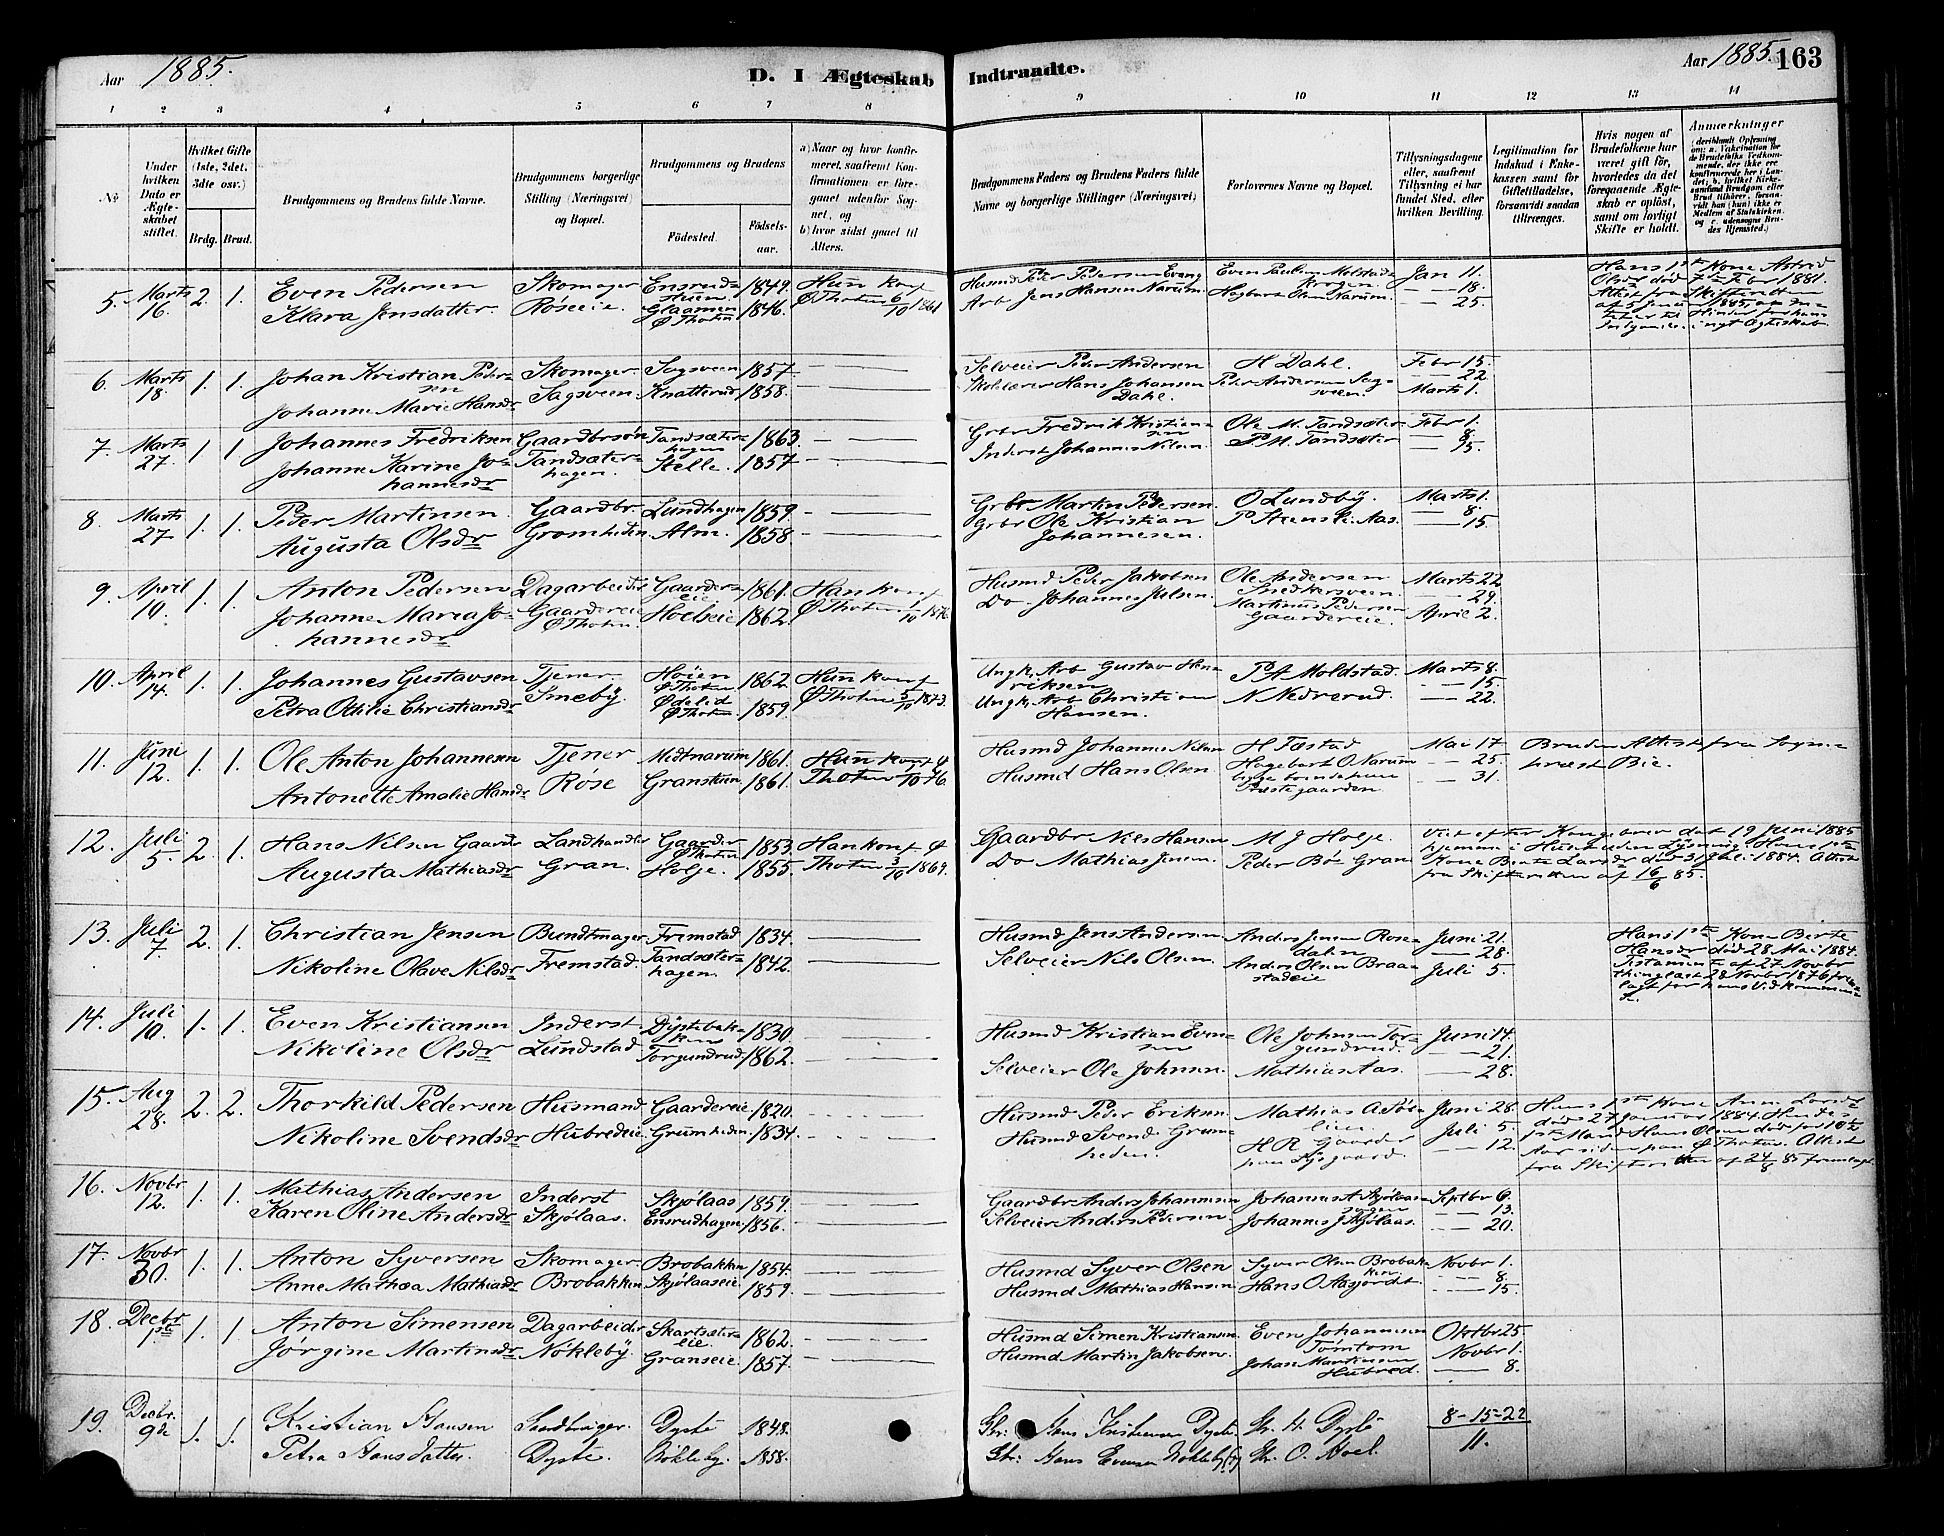 Aar 1885.
D. I Ægteskab Indtraadte.
Aar 1885. 163
1 2 3 4 5 6 7 8 9 10 11 12 13 14
№
Under hvilken Dato er Ægteskabet stiftet.
Hvilket Gifte (1ste, 2det, 3die osv.)
Brdg. Brud.
Brudgommens og Brudens fulde Navne.
Brudgommens borgerlige Stilling (Næringsvei) og Bopæl.
Brudgommens og Brudens
Fødested.
Fødselsaar.
a) Naar og hvor konfirmeret, saafremt Konfirmationen er foregaaet udenfor Sognet, og
b) hvor sidst gaaet til Alters.
Brudgommens Faders og Brudens Faders fulde Navne og borgerlige Stillinger (Næringsvei)
Forlovernes Navne og Bopæl.
Tillysningsdagene eller, saafremt Tillysning ei har fundet Sted, efter hvilken Bevilling.
Legitimation for Indskud i Enkekassen samt for Giftetilladelse, forsaavidt saadan tiltrænges.
Hvis nogen af Brudefolkene har været gift før, hvorledes da det foregaaende Ægteskab er opløst, samt om lovligt Skifte er holdt.
Anmærkninger
5. Marts 16. 2. 1.
Even Pedersen
Klara Jensdatter.
Skomager
Røseeie.
Ensrudhuen 1849.
Glaamen Ø Thoten 1846.
Hun konf Ø Thoten 6/10 1861
Husmd Peder Pedersen Evang
Arb Jens Hansen Narum.
Even Paulsen Molstadkrogen.
Hagbart Olsen Narum.
Jan 11.
— 18.
— 25.
Hans 1ste Kone Astrid
Olsdr død 7de Febr 1881.
Attest fra Skifteretten
af 5 Januar 1885, at In-
tet er til Hinder for hans
Indgaae i nyt Ægteskab.
6. Marts 18. 1. 1.
Johan Kristian Peder-
sen
Johanne Marie Hansdr
Skomager
Sagsveen.
Sagsveen 1857.
Knatterud 1858.
Selveier Peder Andersen
Skoleeier Hans Johansen Dahl.
H Dahl.
Peder Andersen Sagsveen.
Febr 15.
— 22
Marts 1.
7. Marts 27. 1 1
Johannes Fredriksen
Johanne Karine Jo-
hannesdr
Gaardbrsøn
Tandsæter-
hagen.
Tandsæter-
hagen 1863.
Stelle. 1857
Grbr Fredrik Kristian-
sen
Inderst Johannes Nilsen.
Ole M. Tandsæter
P. M. Tandsæter
Febr 1.
— 8.
— 15.
8. Marts 27 1. 1.
Peder Martinsen.
Augusta Olsdr
Gaardbr.
Gromheden.
Lundhagen 1859
Alm. 1858
Grbr Martin Pedersen.
Grbr Ole Kristian
Johannesen.
O Lundby.
P Steensli Aas.
Marts 1.
— 8.
— 15.
9. April 10. 1. 1.
Anton Pedersen
Johanne Maria Jo-
hannesdr
Dagarbeider
Gaardereie
Ø Thoten.
Gaarder-
eie 1861.
Hoelseie 1862.
Han konf
Ø Thoten 1/10 1876
Husmd Peder Jakobsen
Do. Johannes Julsen.
Ole Andersen
Snedkersveen.
Martinus Pedersen
Gaardereie.
Marts 22
— 29.
April 2.
10. April 14. 1. 1.
Johannes Gustavsen
Petra Otilie Christiansdr
Tjener
Smeby.
Høien
Ø Thoten 1862.
Ødelid
Ø Thoten 1859.
Hun konf
Ø Thoten 5/10 1873.
Ungk. Arb Gustav Hen-
riksen
Ungk. Arb Christian
Hansen.
P A Moldstad.
N Nedrerud.
Marts 8.
— 15.
— 22.
11. Juni 12. 1. 1.
Ole Anton Johannesen
Antonette Amalie Hansdr
Tjener
Rose
Midtnarum 1861.
Granskun 1861.
Hun konf Ø
Thoten /10 76.
Husmd Johannes Nilsen
Husmd Hans Olsen.
H Fæstad
Hagebart O. Narum
begge boende paa
Præstegaarden
Mai 17
— 25.
— 31.
Bruden Attest fra Sogne-
præst Bie.
12. Juli 5. 2. 1.
Hans Nilsen Gaarder
Augusta Mathiasdr
Landhandler
Gran.
Gaarder
Ø Thoten 1853.
Holje. 1855.
Han konf Ø
Thoten 3/10 1869.
Gaardbr Nils Hansen
Do Mathias Jensen.
M J Holje.
Peder Bø Gran
Viet efter Kongebrev dat 19 Juni 1885
hjemme i Huset uden Lysning. Hans 1ste
Kone Berte Larsdr død 31 Juli 1884. Attest
fra Skifteretten af 16/6 85.
13. Juli 7. 2. 1.
Christian Jensen
Nikoline Olave Nilsdr
Bundtmager
Fremstad.
Fremstad 1834.
Tandsæter-
hagen. 1842.
Husmd Jens Andersen
Selveier Nils Olsen.
Anders Jensen Rosen-
dalen
Anders Olsen Braa-
stadeie
Juni 21.
— 28.
Juli 5.
Hans 1ste Kone Berte
Hansdr død 28 Mai 1884.
Testamente af 27 Novbr
thinglæst 28 Novbr 1876 frem-
lagt for hans Vedkommen-
de.
14. Juli 10. 1. 1.
Even Kristiansen
Nikoline Olsdr
Inderst
Lundstad
Dystebak-
ken 1830.
Torgundrud 1862.
Husmd Kristian Even-
sen
Selveier Ole Johnsen.
Ole Johnsen Tor-
gundrud.
Mathias Aas.
Juni 14.
— 21.
— 28.
15. Aug 28. 2. 2.
Thorkild Pedersen
Nikoline Svendsdr
Husmand
Hubredeie.
Gaardereie. 1820.
Grumheden 1834.
Husmd Peder Eriksen
Husmd Svend Grum-
heden.
Mathias A Søe-
lien.
H R Gaarder
paa Dysgaard.
Juni 28.
Juli 5.
— 12.
Hans 1ste Kone Anne Larsdr
døde 27 Januar 1884. Hendes
1ste Mand Hans Olsen død for 10 à 12
Aar siden paa Ø Thoten. Attest
fra Skifteretten af 24/8 85 fremlagt.
16. Novbr 12. 1. 1.
Mathias Andersen
Karen Oline Andersdr
Inderst
Skjølaas.
Skjølaas 1859.
Ensrudhagen 1856.
Gaardbr Anders Johannesen
Selveier Anders Pedersen.
Johannes A Skjølaas-
Johannes J Skjølaas.
Septbr 6.
— 13.
— 20.
17. Novbr 30. 1. 1.
Anton Syversen
Anne Mathea Mathiasdr
Skomager
Brobakken
Brobakken 1854.
Skjølaaseie. 1859.
Husmd Syver Olsen
Husmd Mathias Hansen
Syver Olsen Brobak-
ken
Hans O Aasjordet.
Novbr 1.
— 8.
— 15.
18. Decbr 1ste 1. 1.
Anton Simensen
Jørgine Martinsdr
Dagarbeider
Nøkleby.
Skartsæter-
eie. 1862.
Granseie. 1857.
Husmd Simen Kristiansen
Husmd Martin Jakobsen.
Even Johannesen
Tømtom
Johan Martinsen
Hubred.
Oktbr 25.
Novbr 1.
— 8.
19. Decbr. 9de 1. 1.
Kristian Hansen
Petra Hansdatter.
Sandtinger.
Dyste.
Dyste 1848.
Nøkleby. 1858.
Gbr: Hans Kristiansen Dyste.
Gbr: Hans Evensen Nøkleby (†)
Gbr. H. Dyste
Gbr. O. Hoel.
8-15-22
11.